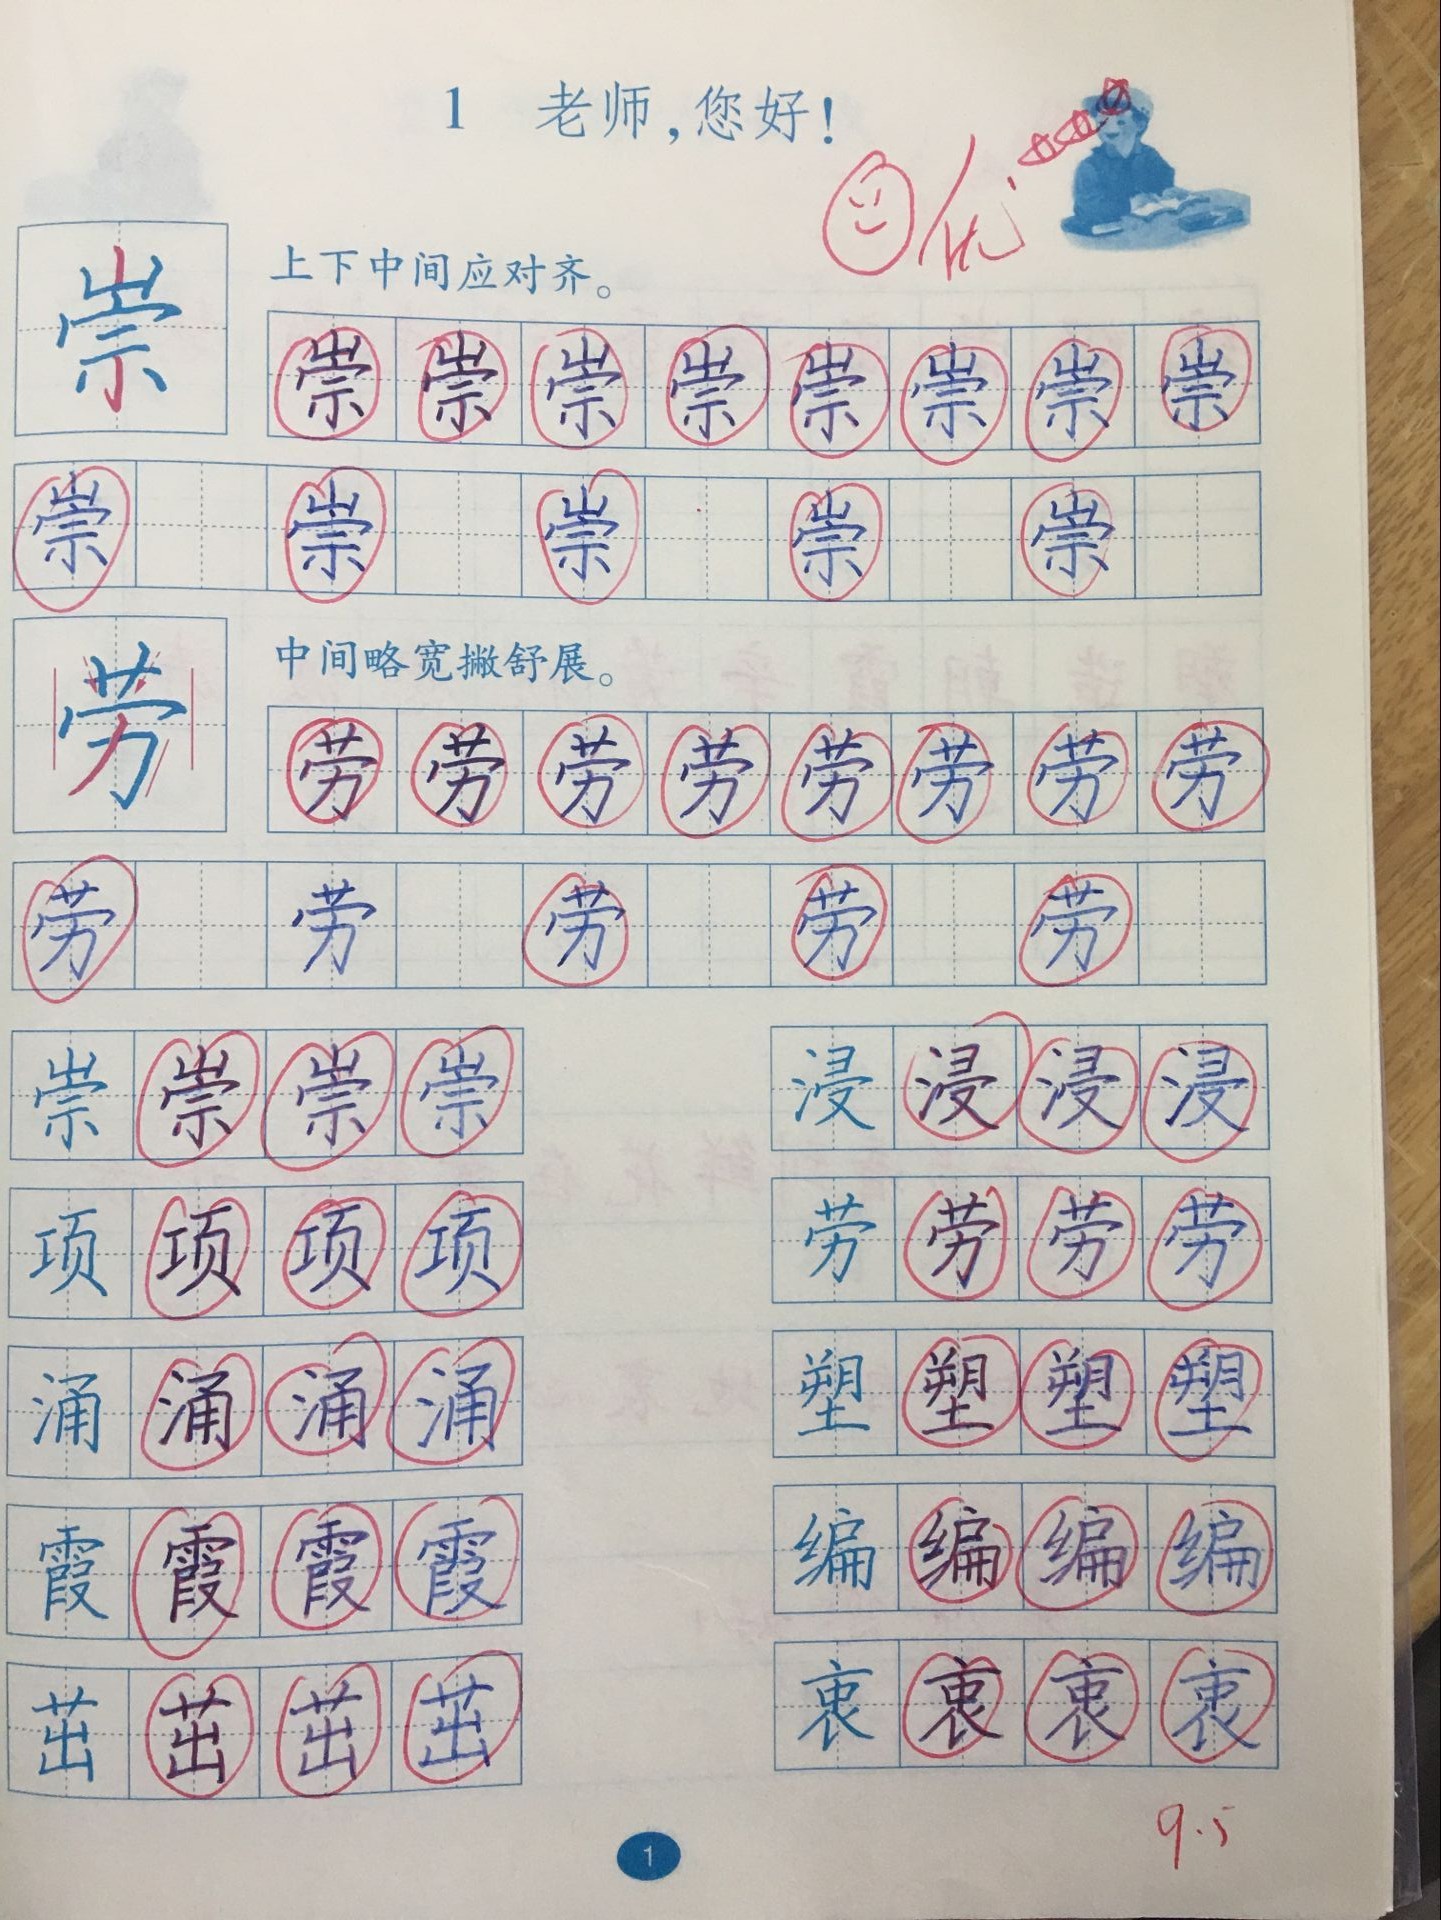 1 老师,您好!
优
崇
上下中间应对齐。
崇 崇 崇 崇 崇 崇 崇 崇
崇 崇 崇 崇 崇
劳
中间略宽撇舒展。
劳 劳 劳 劳 劳 劳 劳 劳
劳 劳 劳 劳 劳
崇 崇 崇 崇 浸 浸 浸 浸
项 项 项 项 劳 劳 劳 劳
涌 涌 涌 涌 塑 塑 塑 塑
霞 霞 霞 霞 编 编 编 编
茁 茁 茁 茁 衷 衷 衷 衷
9.5
1